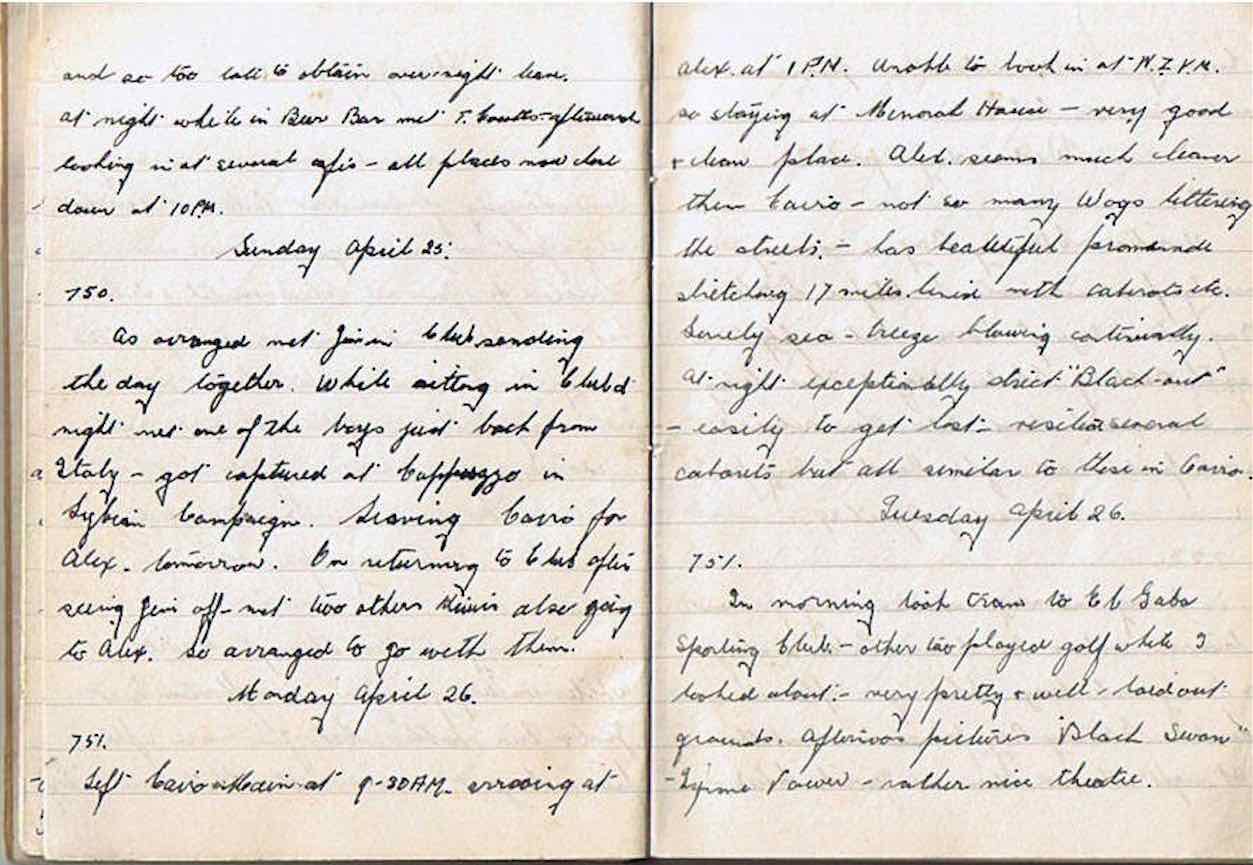 and so too late to obtain over-night leave.
at night while in Beer Bar met T. Coutts - afterwards
looking in at several cafes - all places now close
down at 10 PM.
Sunday April 25.
750.
As arranged met Jim in Club sending
the day together. While sitting in Club d
night met one of the boys just back from
Italy - got captured at Cappuzzo in
Lybian Campaign. Leaving Cairo for
Alex. tomorrow. On returning to Club after
seeing Jim off - met two others Kiwis also going
to Alex. so arranged to go with them.
Monday April 26.
751.
Left Cairo at 9-30 AM. arriving at
Alex. at 1 P.M. Unable to book in at
so staying at Menorah House - very good
+ clean place. Alex. seems much cleaner
then Cairo - not so many Wogs littering
the streets. - has beautiful promanade
stretching 17 miles lined with cabarets etc.
Lovely sea-breeze blowing continually.
At night exceptionally strict "Black-out"
- easily to get lost - several
cabarets but all similar to those in Cairo.
Tuesday April 26.
751.
In morning took tram to El Gaba
Sporting Club. - other two played golf while I
looked about. - very pretty + well-laid out
grounds. Afternoon pictures "Black Swan"
- Power - rather nice theatre.